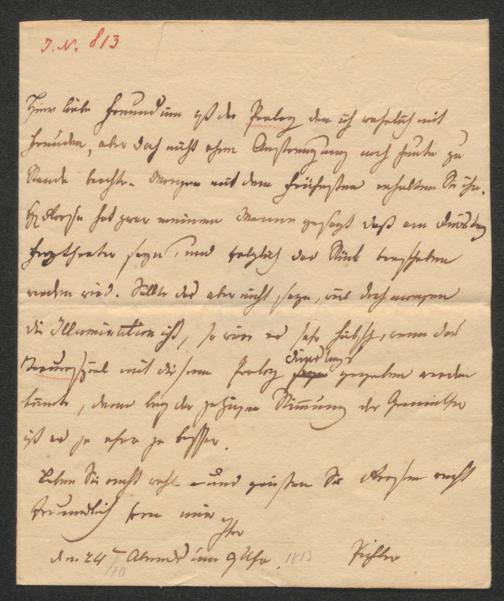 I. N. 813
Hier liebe Freundinn ist der Prolog den ich wahrlich mit
Freuden, aber doch nicht ohne Anstrengung noch heute zu
Stande brachte. Morgen mit dem frühesten erhalten Sie ihn.
hat zwar meinem Manne gesagt daß am Dinstag
Freytheater seyn, und folglich das Stück verschoben
werden wird. Sollte das aber nicht seyn, weil doch morgen
die Illumination ist, so wäre es sehr hübsch, wenn das
mit diesem Prolog Dinstags gegeben werden
könnte, denn bey der jetzigen Stimmung der Gemüther
ist es je eher je besser.
Leben Sie recht wohl und grüßen Sie recht
freundlich von mir
Ihre
den 24 Abends um 9 Uhr. 1813 Pichler
/10